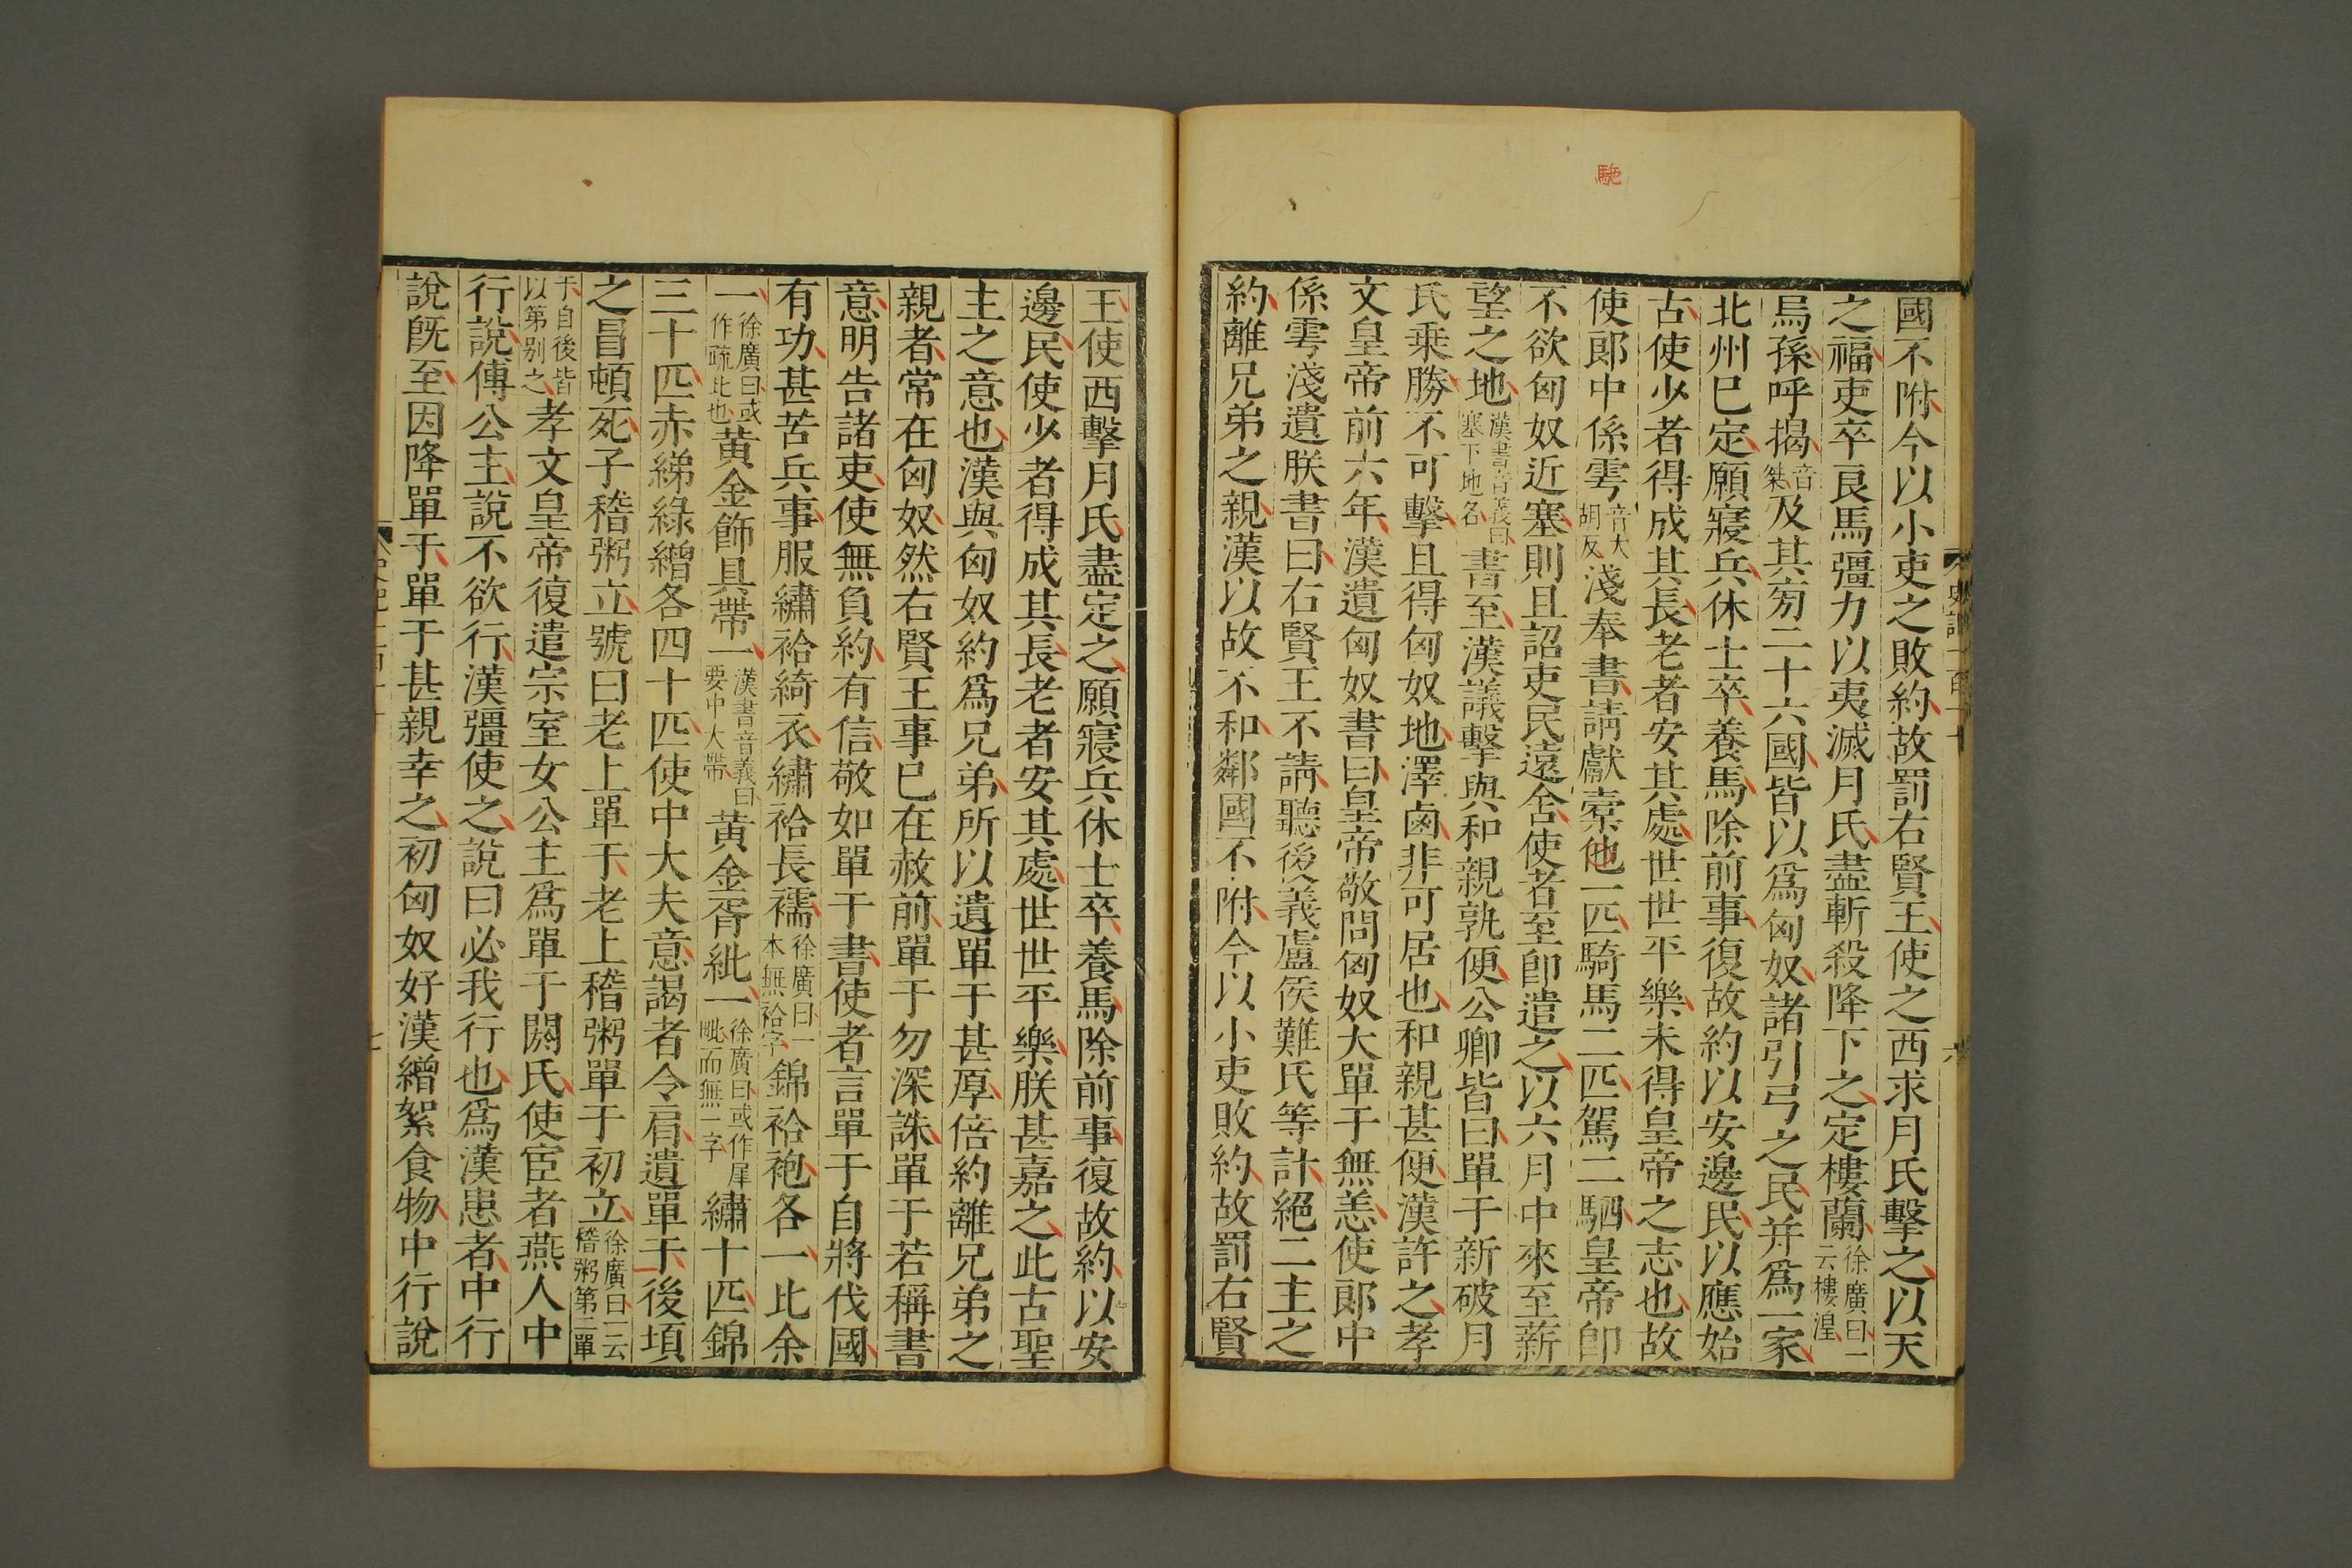 駞
國不附今以小吏之敗約故罰右賢王使之西求月氏擊之以天
之福吏卒良馬彊力以夷滅月氏盡斬殺降下之定樓蘭徐廣曰一云樓湟
烏孫呼揭音桀及其旁二十六國皆以爲匈奴諸引弓之民并爲一家
北州已定願寢兵休士卒養馬除前事復故約以安邊民以應始
古使少者得成其長老者安其處世世平樂未得皇帝之志也故
使郎中係雩音火胡反淺奉書請獻橐他一匹騎馬二匹駕二駟皇帝卽
不欲匈奴近塞則且詔吏民遠舍使者至卽遣之以六月中來至薪
望之地漢書音義曰塞下地名書至漢議擊與和親孰便公卿皆曰單于新破月
氏乗勝不可擊且得匈奴地澤鹵非可居也和親甚便漢許之孝
文皇帝前六年漢遺匈奴書曰皇帝敬問匈奴大單于無恙使郎中
係雩淺遺朕書曰右賢王不請聽後義盧侯難氏等計絕二主之
約離兄弟之親漢以故不和鄰國不附今以小吏敗約故罰右賢
史記一百一十
六
王使西擊月氏盡定之願寢兵休士卒養馬除前事復故約以安
邊民使少者得成其長老者安其處世世平樂朕甚嘉之此古聖
主之意也漢與匈奴約爲兄弟所以遺單于甚厚倍約離兄弟之
親者常在匈奴然右賢王事已在赦前單于勿深誅單于若稱書
意明告諸吏使無負約有信敬如單于書使者言單于自將伐國
有功甚苦兵事服繡袷綺衣繡袷長襦徐廣曰一本無袷字錦袷袍各一比余
一徐廣曰或作疏比也黃金飾具帶一漢書音義曰要中大帶黃金胥紕一徐廣曰或作犀毗而無一字繡十匹錦
三十匹赤綈綠繒各四十匹使中大夫意謁者令肩遺單于後頃
之冒頓死子稽粥立號曰老上單于老上稽粥單于初立徐廣曰一云稽粥第二單
于自後皆以第别之孝文皇帝復遣宗室女公主爲單于閼氏使宦者燕人中
行說傅公主說不欲行漢彊使之說曰必我行也爲漢患者中行
說旣至因降單于單于甚親幸之初匈奴好漢繒絮食物中行說
七